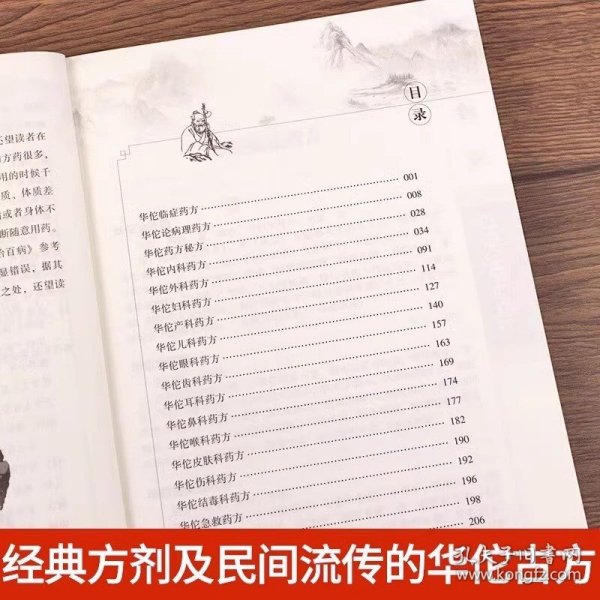 还望读者在
方药很多,
用的时候千
质、体质差
或者身体不
断随意用药。
治百病》参考
显错误,据其
之处,还望读
目录
华佗临症药方 001
华佗论病理药方 008
华佗药方秘方 028
华佗内科药方 034
华佗外科药方 091
华佗妇科药方 114
华佗产科药方 127
华佗儿科药方 140
华佗眼科药方 157
华佗齿科药方 163
华佗耳科药方 169
华佗鼻科药方 174
华佗喉科药方 177
华佗皮肤科药方 182
华佗伤科药方 190
华佗结毒科药方 192
华佗急救药方 196
198
206
经典方剂及民间流传的华佗古方
孔夫子旧书网
www.kongfz.com